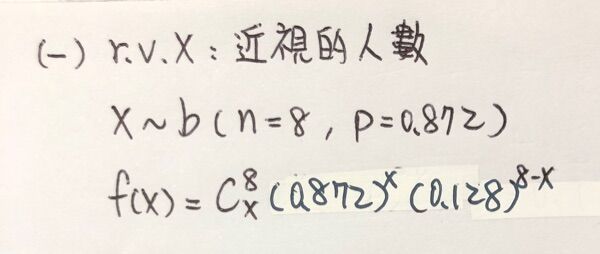 (一) r.v.X：近視的人數
X~b(n=8, p=0.872)
f(x)=C⁸ₓ(0.872)ˣ(0.128)⁸⁻ˣ